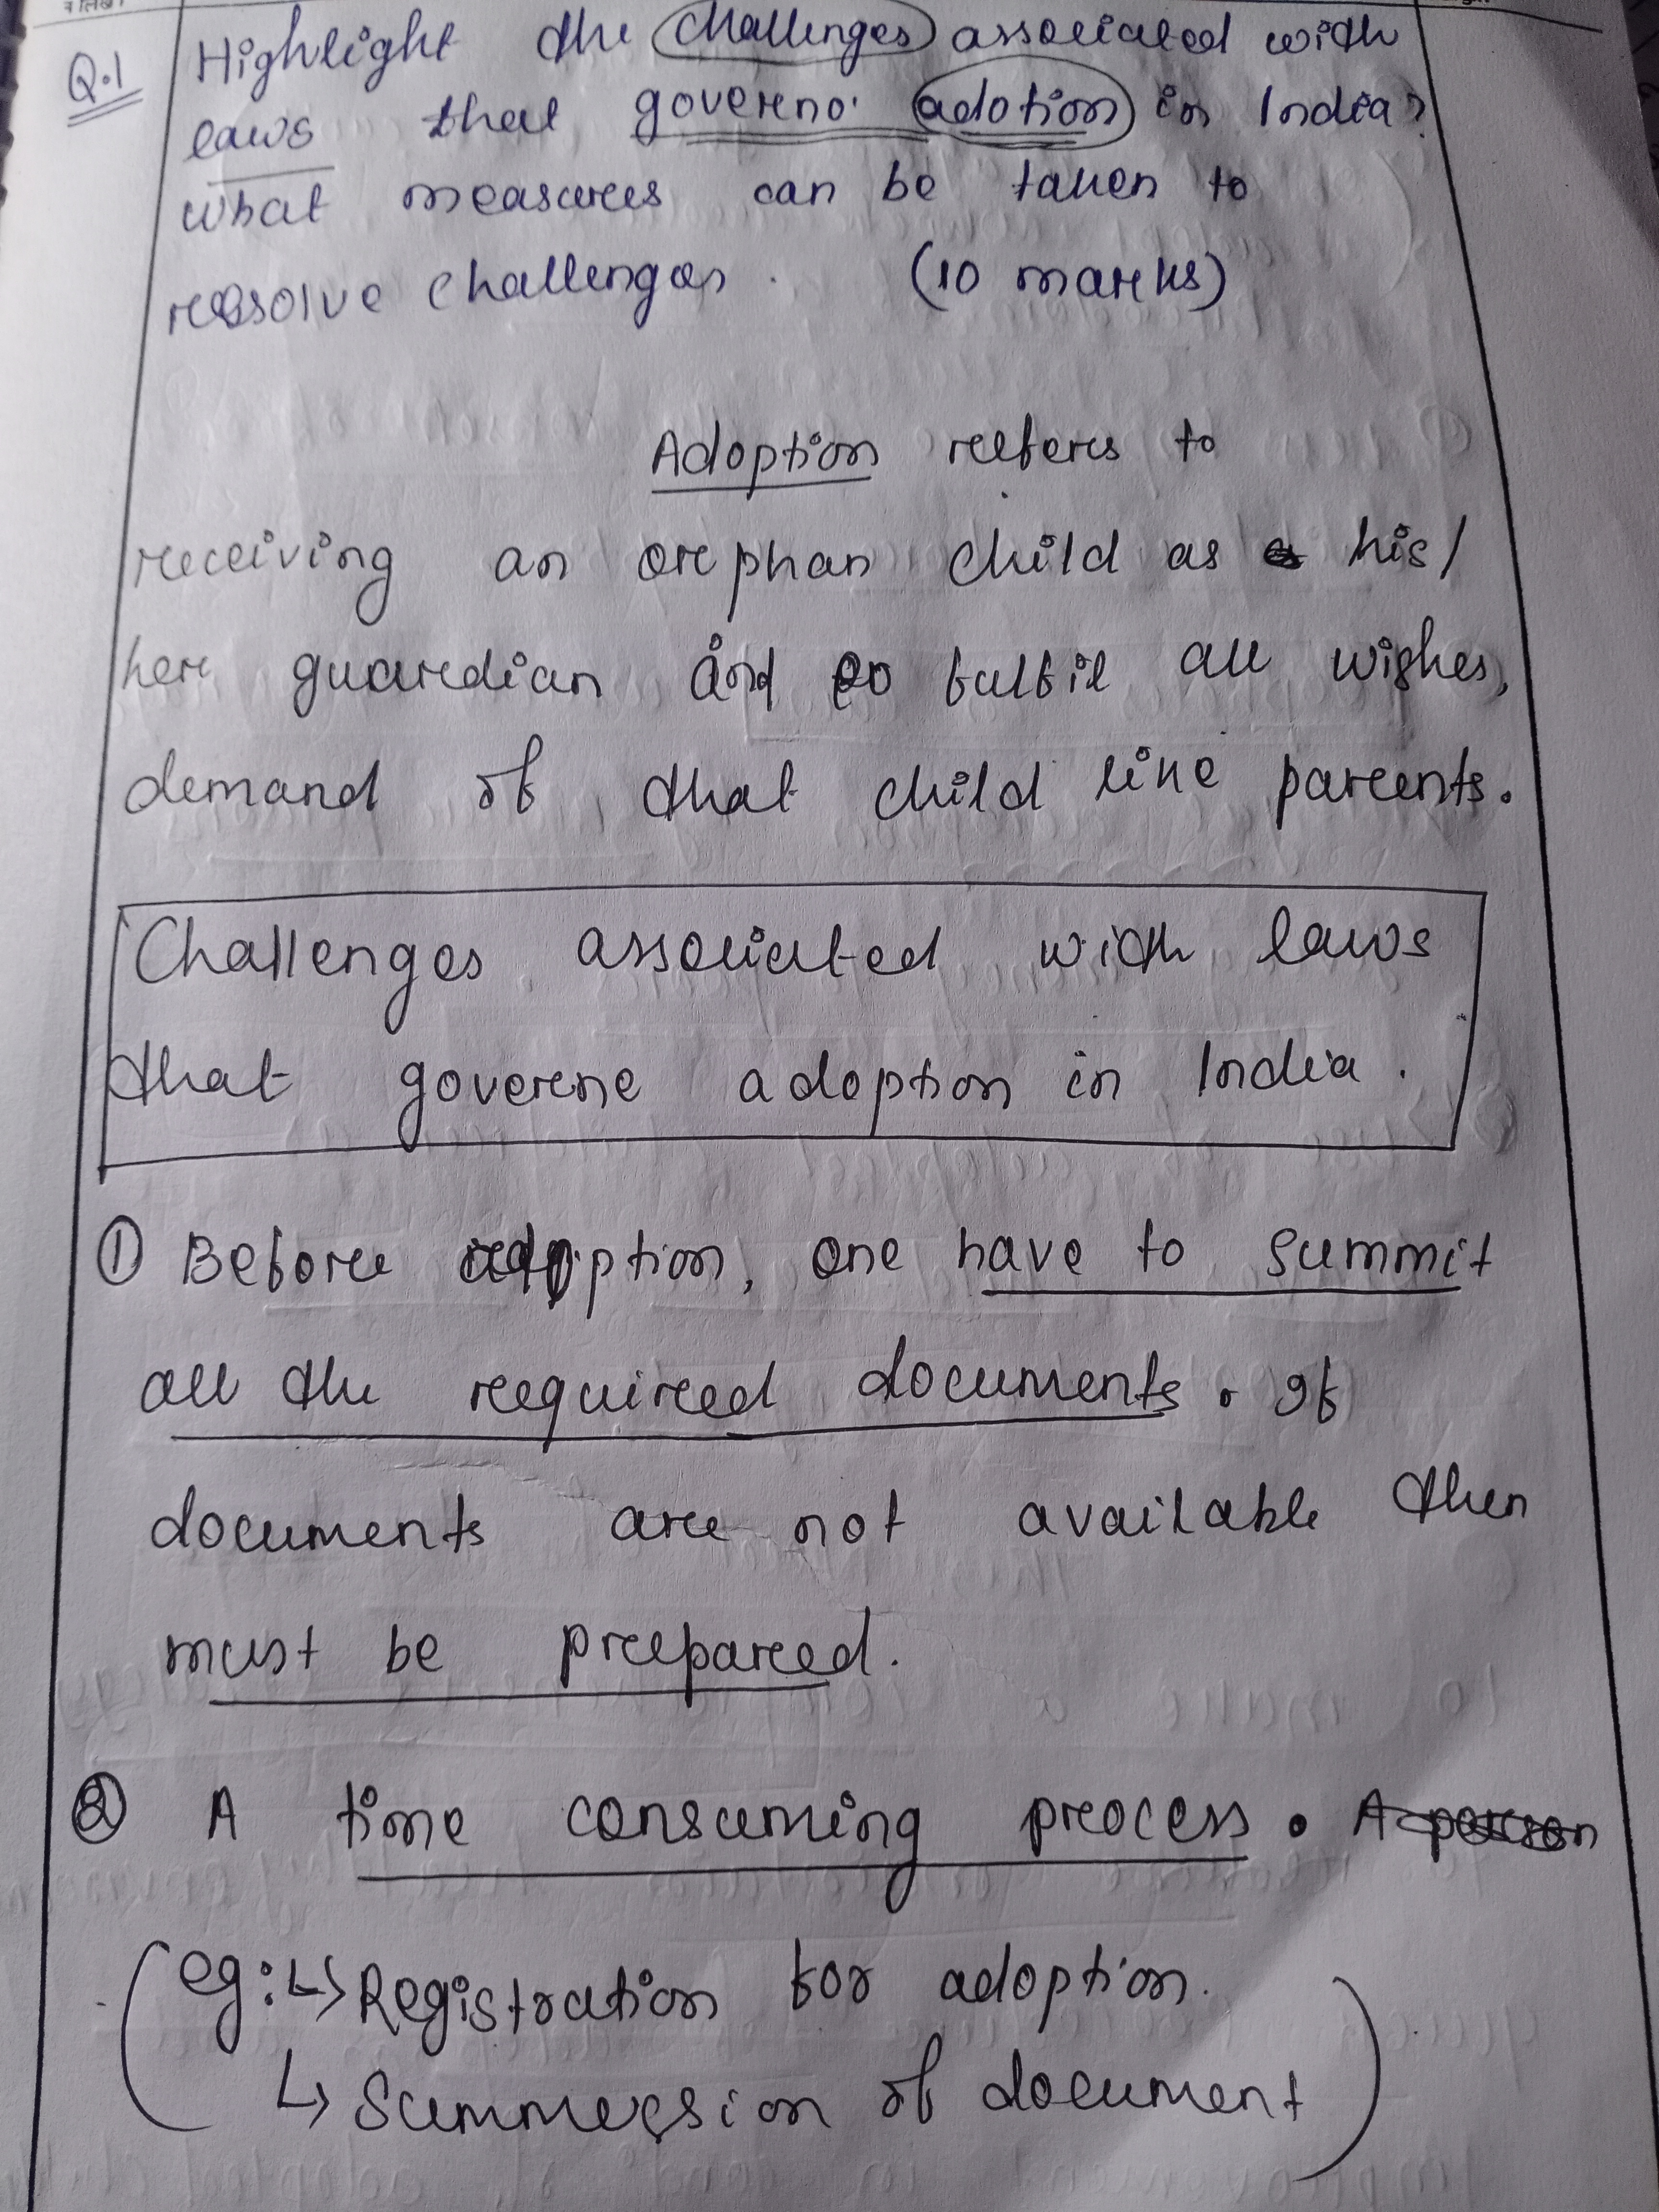 Q.1 Highlight the challenges associated with
laws that governo adotion in India?
what measures can be taken to
resolve challenges. (10 marks)
Adoption refers to
receiving an orphan child as his/
her guardian and fulfil all wishes,
demand of that child like parents.
Challenges associated with laws
that governe adoption in India.
① Before adoption, one have to summit
all the required documents. If
documents are not available then
must be prepared.
② A time consuming process. A person
(eg:↳ Registration for adoption.
↳ Summession of document)